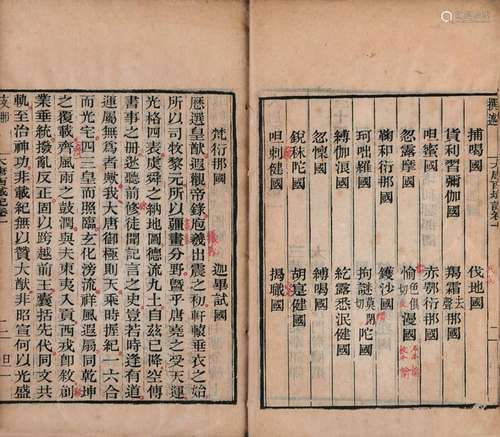 撰述
捕喝國 伐地國
貨利習彌伽國 羯霜去聲那國
呾蜜國 赤鄂衍那國
忽露摩國 愉色俱切漫國
鞠和衍那國 鑊沙國
珂咄羅國 拘謎莫閉切陀國
縛伽浪國 紇露悉泯健國
忽懍國 縛喝國
銳秣陀國 胡寔健國
呾剌健國 揭職國
梵衍那國 迦畢試國
歷選皇猷遐觀帝錄庖羲出震之初軒轅垂衣之始
所以司牧黎元所以疆畫分野暨乎唐堯之受天運
光格四表虞舜之納地圖德流九土自茲已降空傳
書事之冊逖聽前修徒聞記言之史豈若時逢有道
運屬無為者歟我大唐御極則天乘時握紀一六合
而光宅四三皇而照臨玄化滂流祥風遐扇同乾坤
之覆載齊風雨之鼓潤與夫東夷入貢西戎即敘創
業垂統撥亂反正固以跨越前王囊括先代同文共
軌至治神功非載紀無以贊大猷非昭宣何以光盛
大唐西域記卷一 二